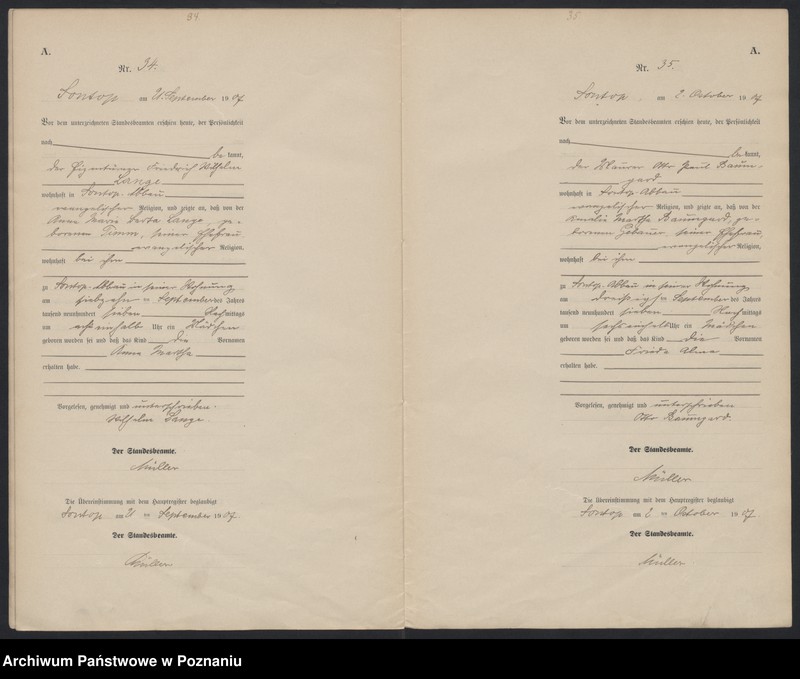 84
A.
Nr. 34.
Sontop am 21. September 1907
Vor dem unterzeichneten Standesbeamten erschien heute, der Persönlichkeit
nach
bekannt,
der Eigentümer Friedrich Wilhelm
Lange
wohnhaft in Sontop-Abbau
evangelischer Religion, und zeigte an, daß von der
Anna Marie Lange, ge-
borenen Timm, seiner Ehefrau
evangelischer Religion,
wohnhaft bei ihm
zu Sontop-Abbau in seiner Wohnung
am siebzehn ten September des Jahres
tausend neunhundert sieben mittags
um Uhr ein Mädchen
geboren worden sei und daß das Kind die Vornamen
Anna Martha
erhalten habe.
Vorgelesen, genehmigt und unterschrieben.
Wilhelm Lange.
Der Standesbeamte.
Müller
Die Übereinstimmung mit dem Hauptregister beglaubigt
Sontop am 21 ten September 1907.
Der Standesbeamte.
Müller
35
A.
Nr. 35.
Sontop, am 2. October 1907
Vor dem unterzeichneten Standesbeamten erschien heute, der Persönlichkeit
nach
bekannt,
der Maurer Otto Paul Baum-
gard
wohnhaft in Sontop-Abbau
evangelischer Religion, und zeigte an, daß von der
Amalie Martha Baumgard, ge-
borenen Gebauer, seiner Ehefrau,
evangelischer Religion,
wohnhaft bei ihm
zu Sontop-Abbau in seiner Wohnung
am dreißig ten September des Jahres
tausend neunhundert sieben Nachmittags
um sechseinhalb Uhr ein Mädchen
geboren worden sei und daß das Kind die Vornamen
Frieda Alma
erhalten habe.
Vorgelesen, genehmigt und unterschrieben
Otto Baumgard.
Der Standesbeamte.
Müller
Die Übereinstimmung mit dem Hauptregister beglaubigt
Sontop am 2 ten October 1907
Der Standesbeamte.
Müller
Archiwum Państwowe w Poznaniu